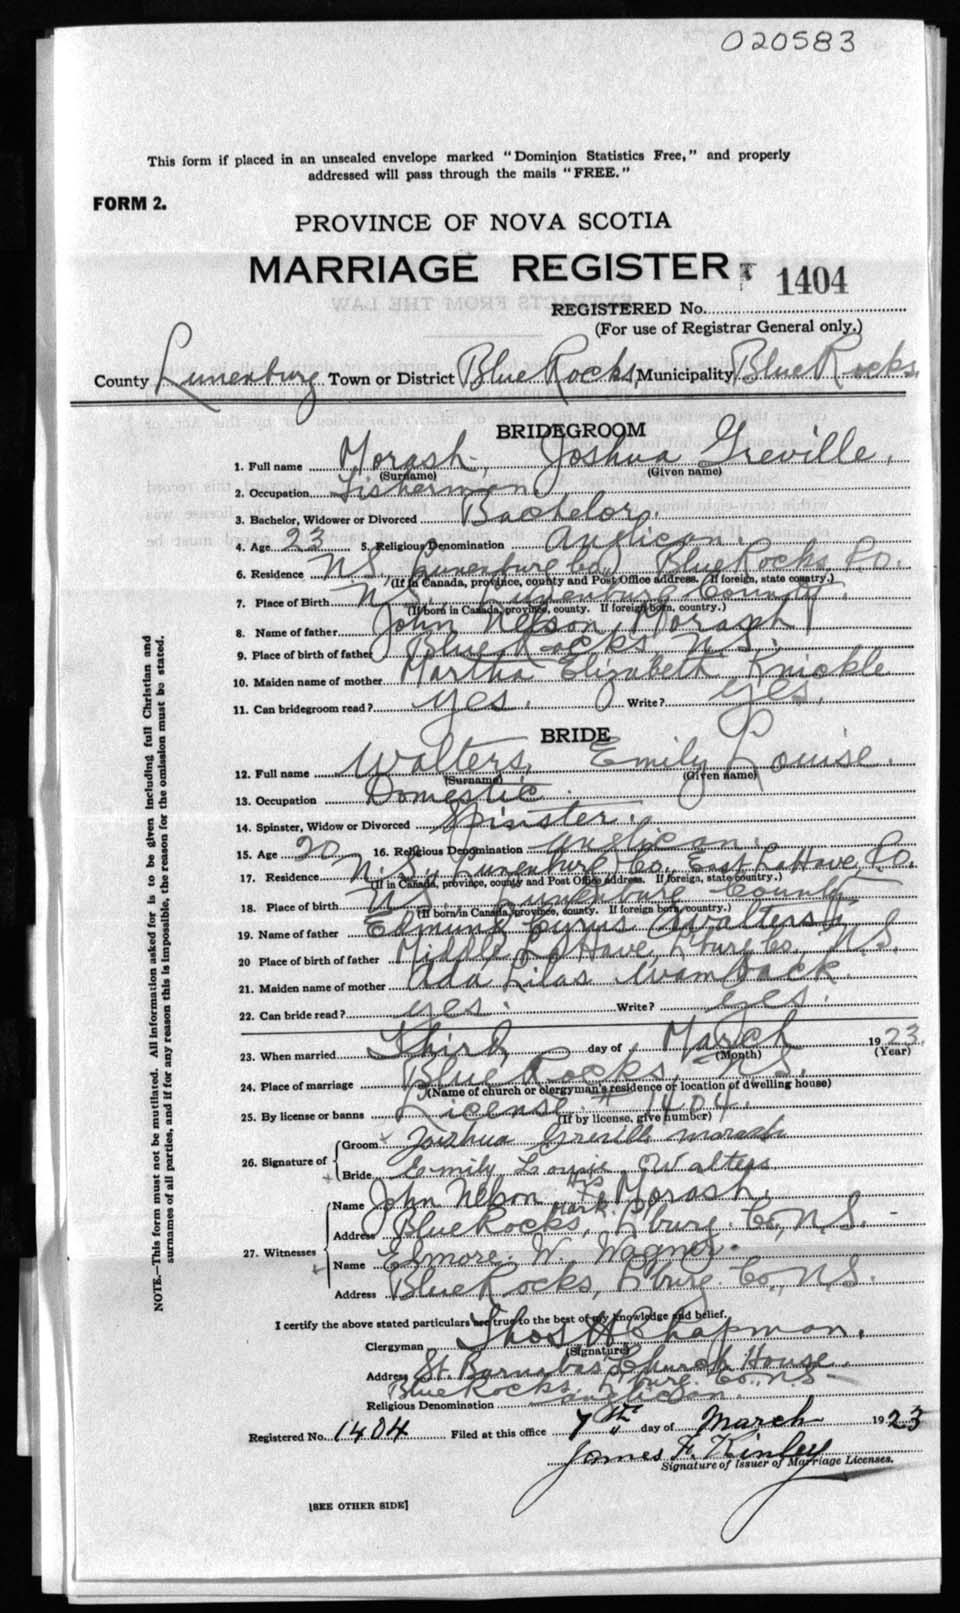 020583
This form if placed in an unsealed envelope marked "Dominion Statistics Free," and properly
addressed will pass through the mails "FREE."
FORM 2.
PROVINCE OF NOVA SCOTIA
MARRIAGE REGISTER
1404
REGISTERED No.
(For use of Registrar General only.)
County Lunenburg Town or District Blue Rocks, Municipality Blue Rocks.
BRIDEGROOM
1. Full name Morash, Joshua Greville.
(Surname) (Given name)
2. Occupation Fisherman.
3. Bachelor, Widower or Divorced Bachelor.
4. Age 23 5. Religious Denomination Anglican.
6. Residence N.S., Lunenburg Co., Blue Rocks, P.O.
(If in Canada, province, county and Post Office address. If foreign, state country.)
7. Place of Birth N.S. Lunenburg County.
(If born in Canada, province, county. If foreign born, country.)
8. Name of father John Nelson Morash
9. Place of birth of father Blue Rocks, N.S.
10. Maiden name of mother Martha Elizabeth Knickle
11. Can bridegroom read? yes. Write? yes.
BRIDE
12. Full name Walters, Emily Louise.
(Surname) (Given name)
13. Occupation Domestic.
14. Spinster, Widow or Divorced Spinster.
15. Age 20 16. Religious Denomination Anglican.
17. Residence N.S., Lunenburg Co., East LaHave, P.O.
(If in Canada, province, county and Post Office address. If foreign, state country.)
18. Place of birth N.S. Lunenburg County
(If born in Canada, province, county. If foreign born, country.)
19. Name of father Edmund Cyrus Walters
20 Place of birth of father Middle LaHave, L'burg Co., N.S.
21. Maiden name of mother Ada Lilas Wamback
22. Can bride read? yes. Write? yes.
23. When married Third day of March 1923.
(Month) (Year)
24. Place of marriage Blue Rocks, N.S.
(Name of church or clergyman's residence or location of dwelling house)
25. By license or banns License # 1404.
(If by license, give number)
26. Signature of Groom Joshua Greville Morash
Bride Emily Louise Walters
27. Witnesses
Name John Nelson his x mark Morash.
Address Blue Rocks, L'burg. Co., N.S.
Name Elmore. W. Wagner.
Address Blue Rocks, L'burg. Co., N.S.
I certify the above stated particulars are true to the best of my knowledge and belief.
Clergyman Thos W Chapman.
(Signature)
Address St Barnabas Church House.
Blue Rocks, L'burg. Co., N.S.
Religious Denomination Anglican.
Registered No. 1404 Filed at this office 7th day of March 1923
James F. Kinley
Signature of Issuer of Marriage Licenses.
[SEE OTHER SIDE]
NOTE.—This form must not be mutilated. All information asked for is to be given including full Christian and
surnames of all parties, and if for any reason this is impossible, the reason for the omission must be stated.